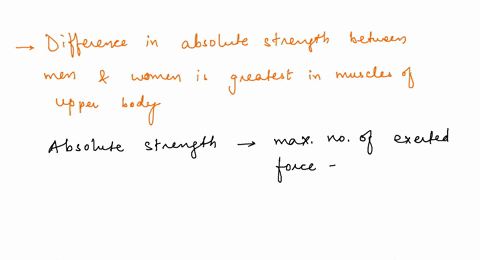 → Difference in absolute strength between
men & women is greatest in muscles of
upper body
Absolute strength → max. no. of exerted
force -